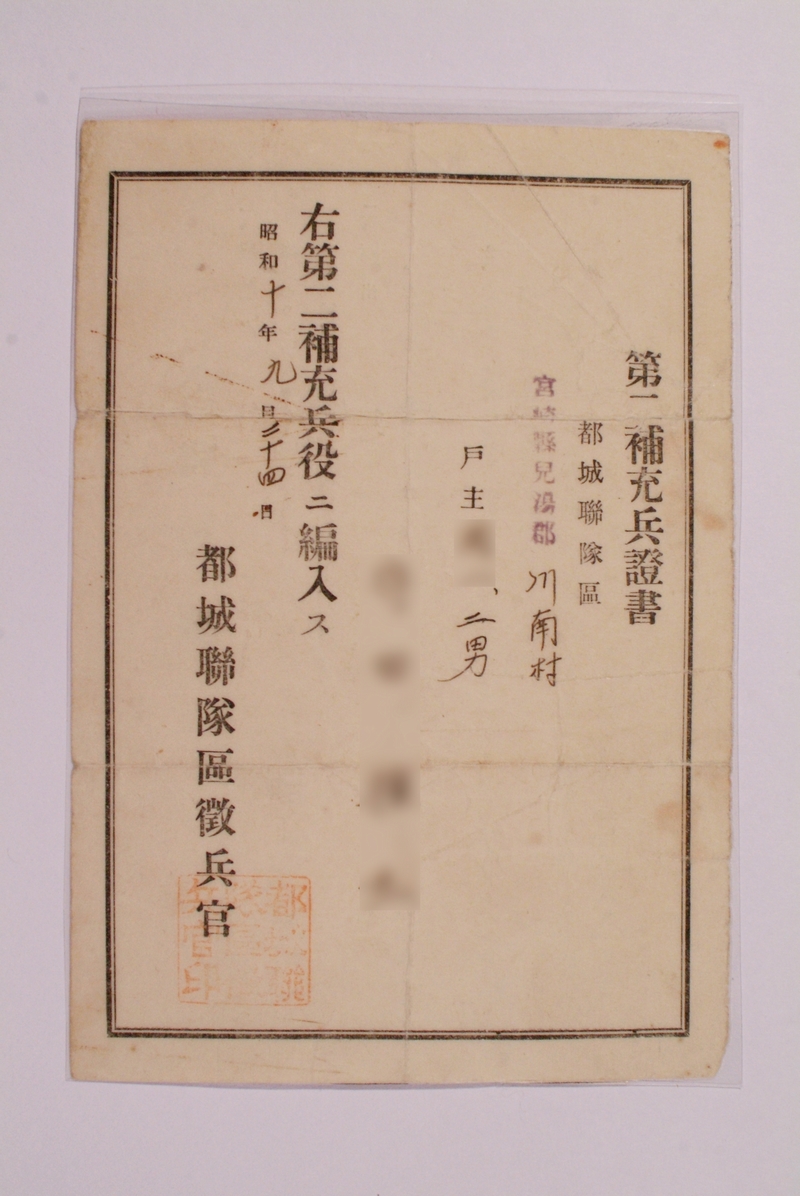 第二補充兵證書
都城聯隊區
宮崎縣兒湯郡川南村
戸主 、二男
右第二補充兵役ニ編入ス
昭和十年九月二十四日
都城聯隊區徵兵官